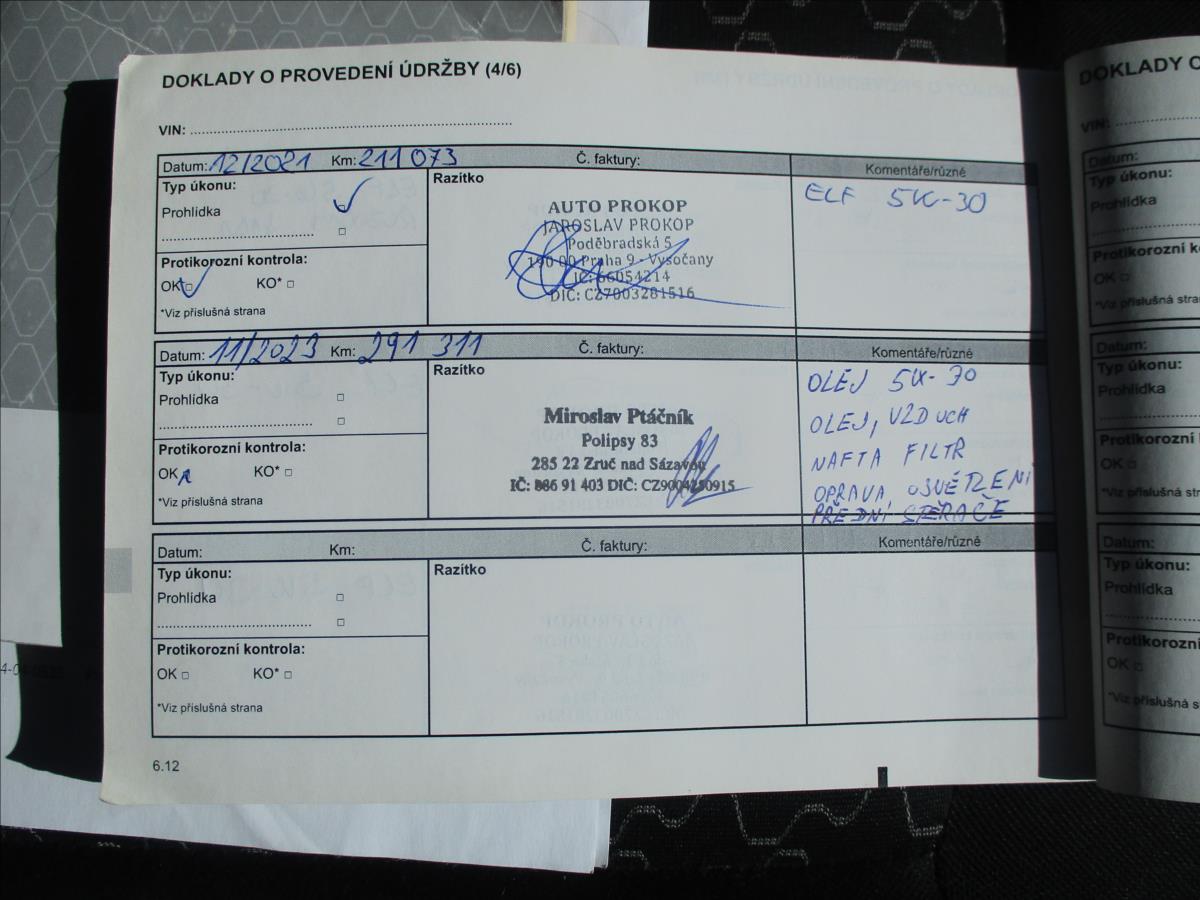 DOKLADY O PROVEDENÍ ÚDRŽBY (4/6)
VIN:
Datum: 12/2021 Km: 211 073 Č. faktury: Komentáře/různé
Typ úkonu:
Prohlídka
Protikorozní kontrola:
OK KO*
*Viz příslušná strana
Razítko
AUTO PROKOP
JAROSLAV PROKOP
Poděbradská 5
190 00 Praha 9 - Vysočany
IČ: 66054214
DIČ: CZ7003281516
ELF 5W-30
Datum: 11/2023 Km: 291 311 Č. faktury: Komentáře/různé
Typ úkonu:
Prohlídka
Protikorozní kontrola:
OK KO*
*Viz příslušná strana
Razítko
Miroslav Ptáčník
Polipsy 83
285 22 Zruč nad Sázavou
IČ: 886 91 403 DIČ: CZ9004250915
OLEJ 5W-30
OLEJ, VZDUCH
NAFTA FILTR
OPRAVA OSVĚTLENÍ
PŘEDNÍ STĚRAČE
Datum: Km: Č. faktury: Komentáře/různé
Typ úkonu:
Prohlídka
Protikorozní kontrola:
OK KO*
*Viz příslušná strana
Razítko
6.12
DOKLADY O
VIN:
Datum:
Typ úkonu:
Prohlídka
Protikorozní
OK
*Viz příslušná strana
Datum:
Typ úkonu:
Prohlídka
Protikorozní
OK
*Viz příslušná
Datum:
Typ úkonu:
Prohlídka
Protikorozní
OK
*Viz příslušná